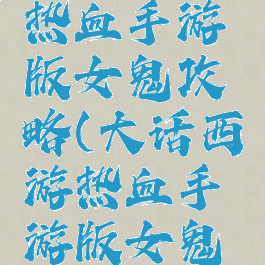 热血手游
版女鬼攻
略(大话西
游热血手
游版女鬼